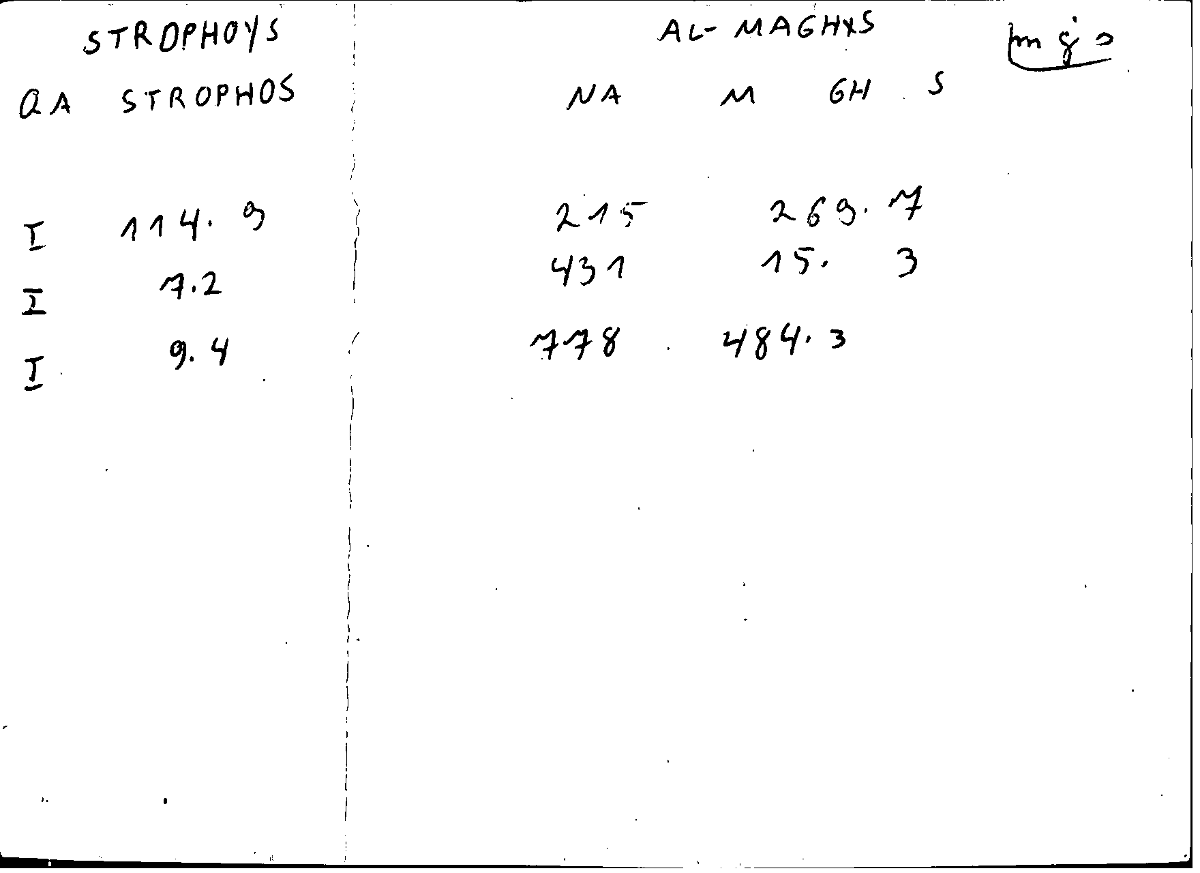 STROPHOYS AL-MAGHXS mġs
QA STROPHOS NA M GH S
I 114.9 215 269.7
I 7.2 431 15.3
I 9.4 778 484.3